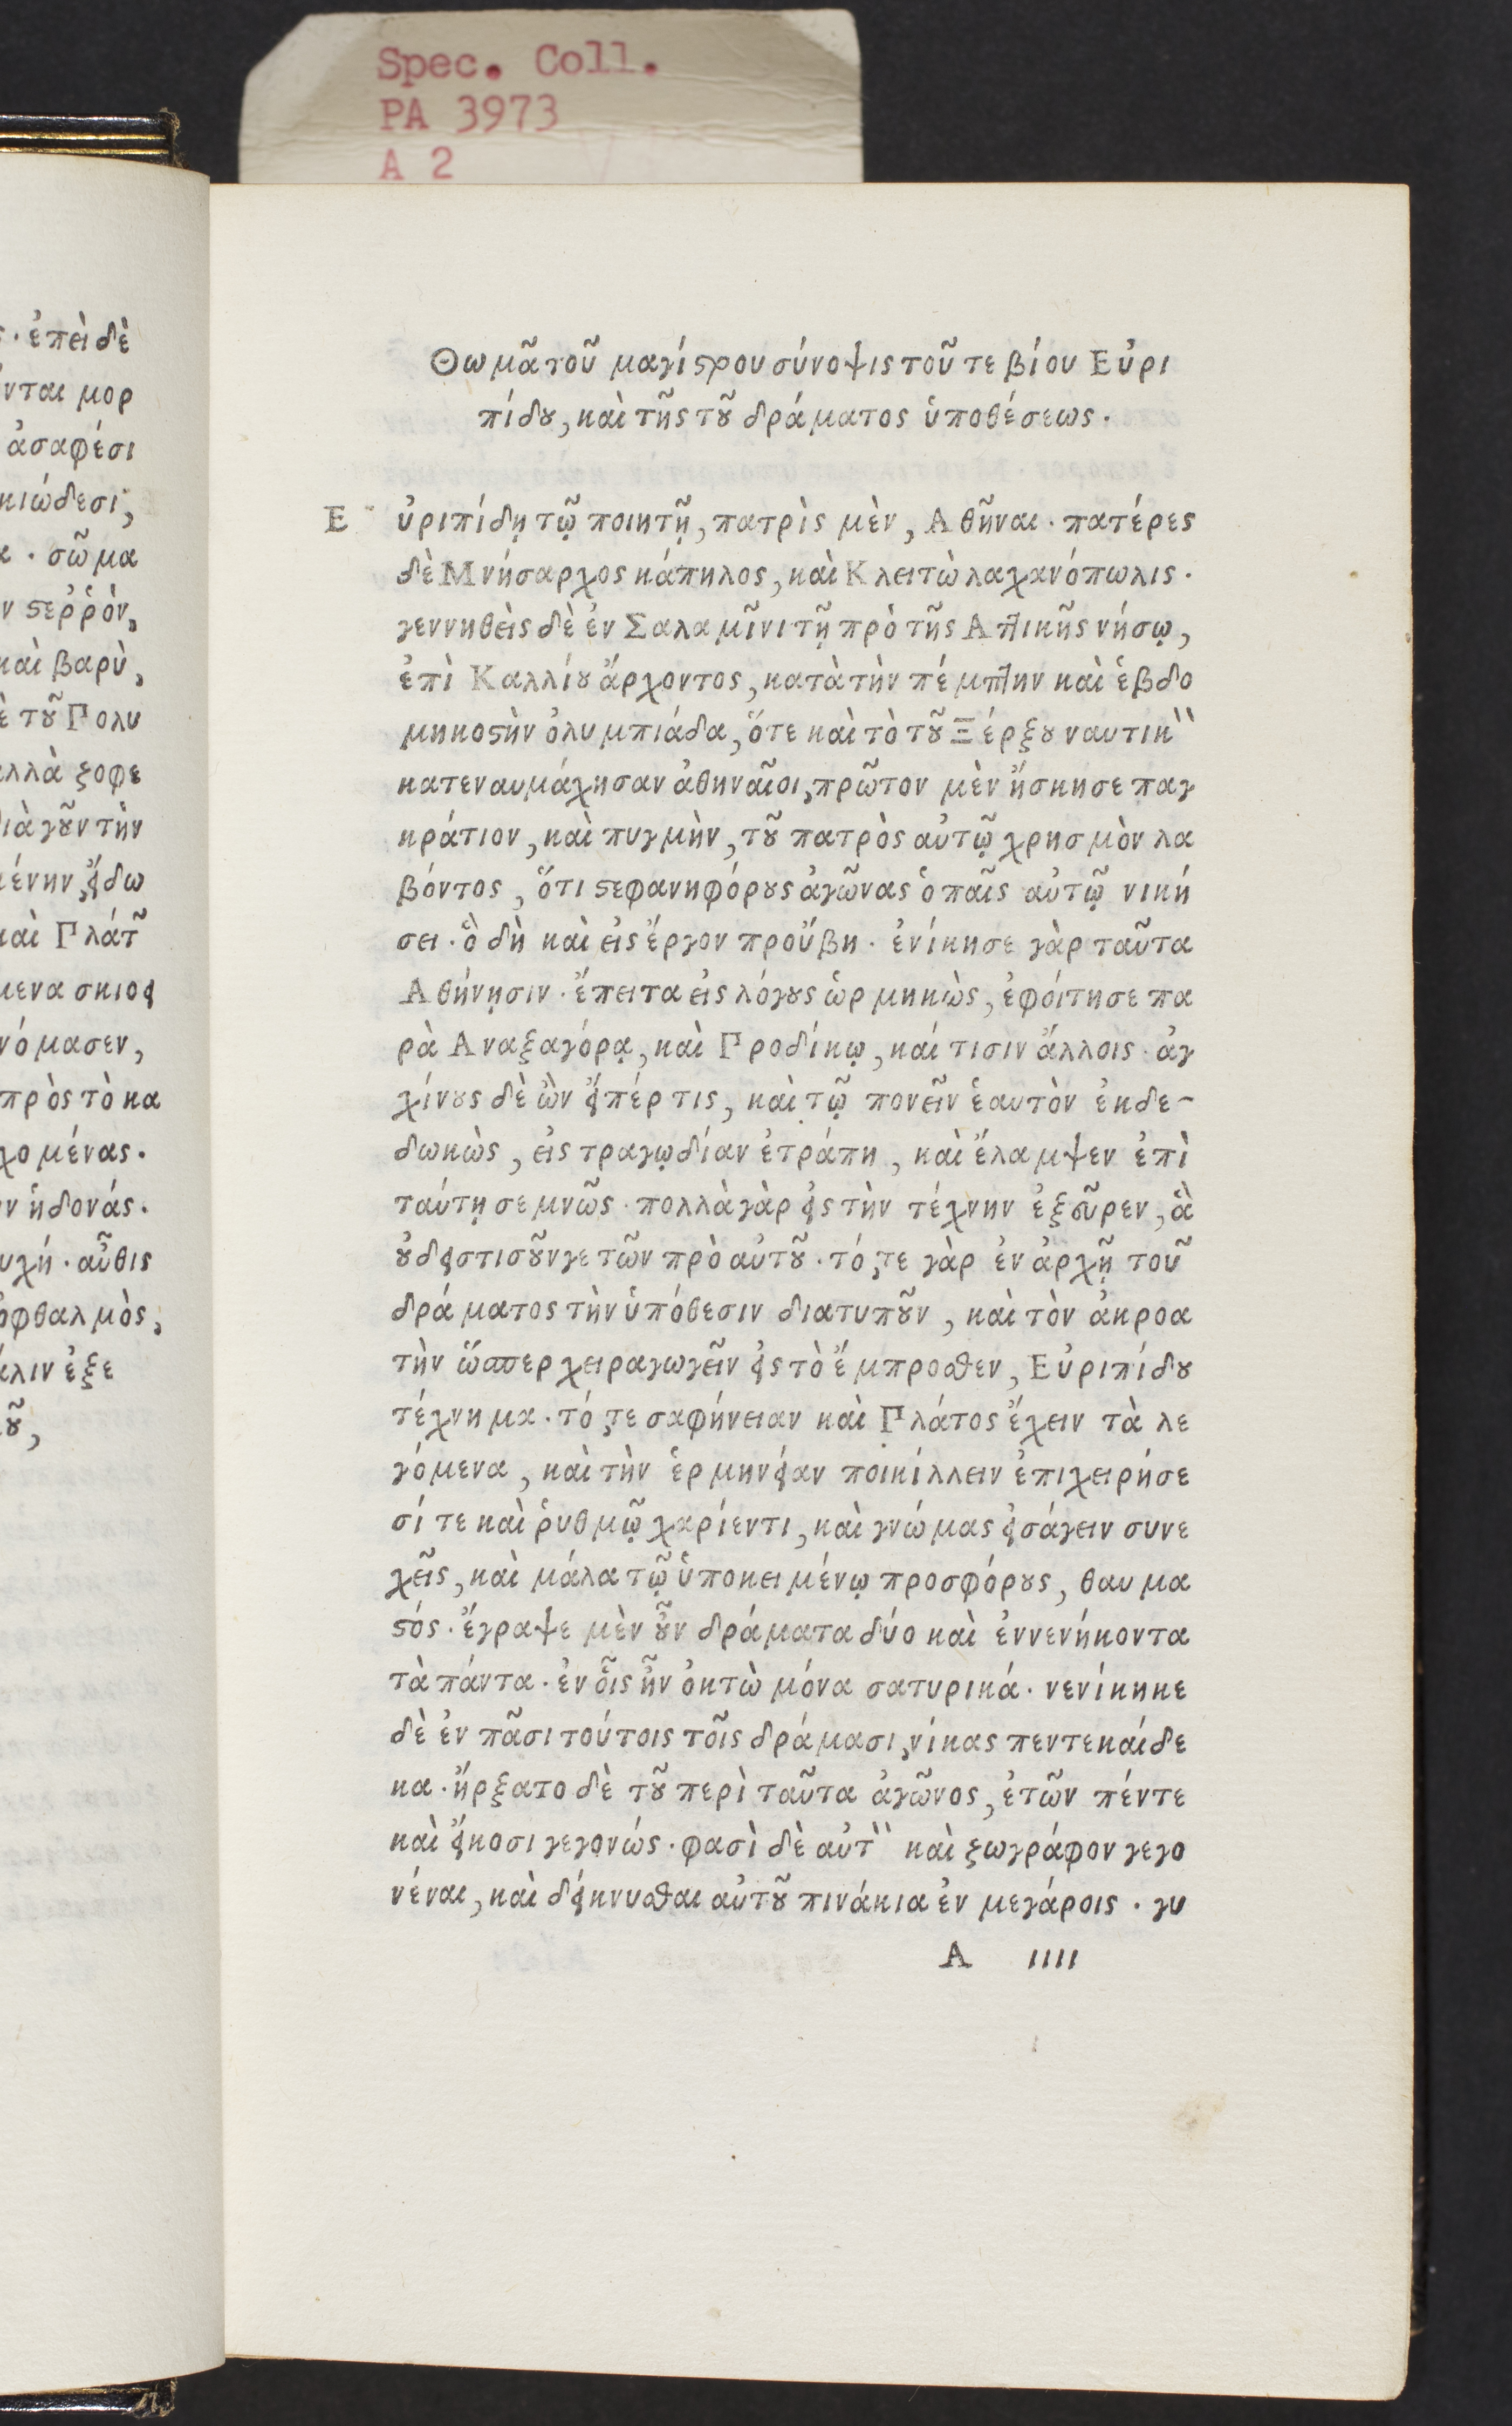 Spec. Coll.
PA 3973
A 2
ἐπεὶ δὲ
νται μορ
ἀσαφέσι
κιώδεσι,
σῶμα
ν ϛεῤῥὸν,
καὶ βαρὺ,
τοῦ Πολυ
λλὰ ζοφε
ιὰ γοῦν τὴν
μένην, εἴδω
καὶ Πλάτ
μενα σκιοει
νόμασεν,
πρὸς τὸ κα
χομένας.
ν ἡδονάς.
υχή. αὖθις
ὀφθαλμὸς,
λιν ἐξε
οῦ,
Θωμᾶ τοῦ μαγίϛρου σύνοψις τοῦ τε βίου Εὐρι
πίδου, καὶ τῆς τοῦ δράματος ὑποθέσεως.
Ε ὐριπίδῃ τῷ ποιητῇ, πατρὶς μὲν, Ἀθῆναι. πατέρες
δὲ Μνήσαρχος κάπηλος, καὶ Κλειτὼ λαχανόπωλις.
γεννηθεὶς δὲ ἐν Σαλαμῖνι τῇ πρὸ τῆς Αττικῆς νήσῳ,
ἐπὶ Καλλίου ἄρχοντος, κατὰ τὴν πέμπτην καὶ ἑβδο
μηκοϛὴν ὀλυμπιάδα, ὅτε καὶ τὸ τοῦ Ξέρξου ναυτικὸν
κατεναυμάχησαν ἀθηναῖοι, πρῶτον μὲν ἤσκησε παγ
κράτιον, καὶ πυγμὴν, τοῦ πατρὸς αὐτῷ χρησμὸν λα
βόντος, ὅτι ϛεφανηφόρους ἀγῶνας ὁ παῖς αὐτῷ νική
σει. ὃ δὴ καὶ εἰς ἔργον προὔβη. ἐνίκησε γὰρ ταῦτα
Αθήνῃσιν. ἔπειτα εἰς λόγους ὡρμηκὼς, ἐφοίτησε πα
ρὰ Αναξαγόρᾳ, καὶ Προδίκῳ, καί τισιν ἄλλοις. ἀγ
χίνους δὲ ὢν εἴπέρ τις, καὶ τῷ πονεῖν ἑαυτὸν ἐκδε-
δωκὼς, εἰς τραγῳδίαν ἐτράπη, καὶ ἔλαμψεν ἐπὶ
ταύτῃ σεμνῶς. πολλὰ γὰρ εἰς τὴν τέχνην ἐξεῦρεν, ἃ
οὐδεὶστισοῦν γε τῶν πρὸ αὐτοῦ. τό, τε γὰρ ἐν ἀρχῇ τοῦ
δράματος τὴν ὑπόθεσιν διατυποῦν, καὶ τὸν ἀκροα
τὴν ὥσπερ χειραγωγεῖν εἰς τὸ ἔμπροσθεν, Εὐριπίδου
τέχνημα. τό, τε σαφήνειαν καὶ Πλάτος ἔχειν τὰ λε
γόμενα, καὶ τὴν ἑρμηνείαν ποικίλλειν ἐπιχειρήσε
σί τε καὶ ῥυθμῷ χαρίεντι, καὶ γνώμας εἰσάγειν συνε
χεῖς, καὶ μάλα τῷ ὑποκειμένῳ προσφόρους, θαυμα
ϛός. ἔγραψε μὲν οὖν δράματα δύο καὶ ἐννενήκοντα
τὰ πάντα. ἐν οἷς ἦν ὀκτὼ μόνα σατυρικά. νενίκηκε
δὲ ἐν πᾶσι τούτοις τοῖς δράμασι, νίκας πεντεκαίδε
κα. ἤρξατο δὲ τοῦ περὶ ταῦτα ἀγῶνος, ἐτῶν πέντε
καὶ εἴκοσι γεγονώς. φασὶ δὲ αὐτὸν καὶ ζωγράφον γεγο
νέναι, καὶ δείκνυσθαι αὐτοῦ πινάκια ἐν μεγάροις. γυ
Α ΙΙΙΙ